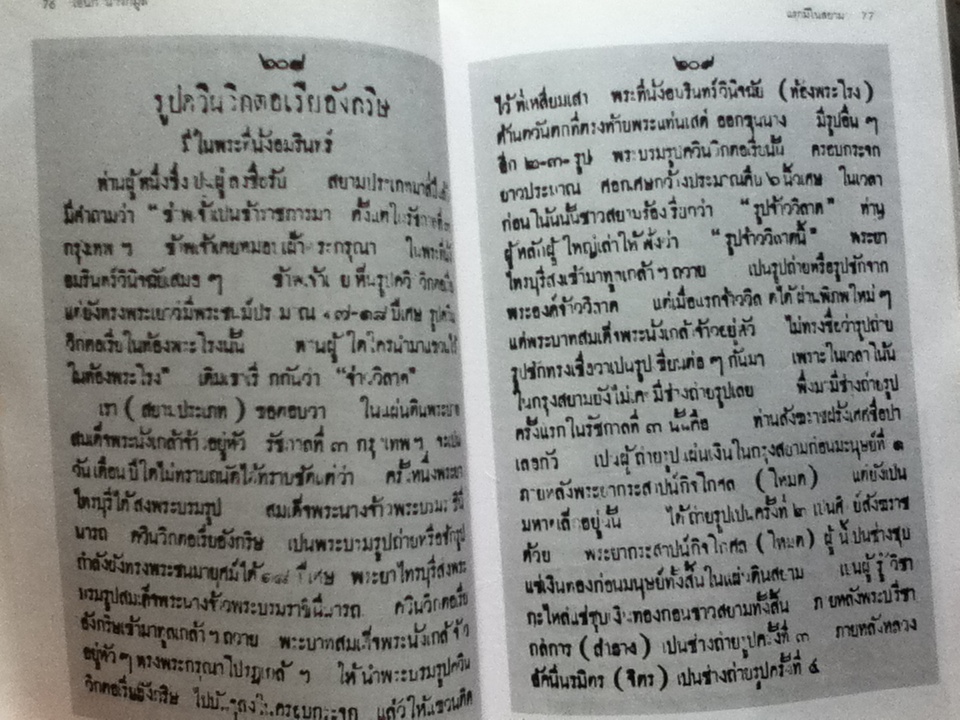 76 เอนก นาวิกมูล
๒๐๙
รูปควีนวิกตอเรียอังกริษ
มีในพระที่นั่งอมรินทร์
ท่านผู้หนึ่งซึ่งเปนผู้ลงชื่อรับ สยามประเภทมา
มีคำถามว่า “ข้าพเจ้าเปนข้าราชการมา ตั้งแตในรัชกาลที่
กรุงเทพ ฯ ข้าพเจ้าเคยหมอบเฝ้า พระกรุณา ในพระที่นั่ง
อมรินทร์วินิจฉัยเสมอ ๆ ข้าพเจ้า เห็นรูปควีนวิกตอเรีย
แต่ยังทรงพระเยาว์มีพระชนม์ประมาณ ๑๗-๑๘ ปีเศษ รูปควีน
วิกตอเรียในท้องพระโรงนั้น ท่านผู้ใดใครนำมาแขวนไว้
ในท้องพระโรง” เดิมเขาเรียกกันว่า “จ้าววิลาด”
เรา (สยามประเภท) ขอตอบว่า ในแผ่นดินพระบาท
สมเด็จพระนั่งเกล้าจ้าวอยู่หัว รัชกาลที่ ๓ กรุงเทพ ฯ จะเปน
วันเดือนปีใดไม่ทราบถนัดได้ทราบชัดแต่ว่า ครั้งหนึ่งพระยา
ไทรบุรีได้ส่งพระบรมรูป สมเด็จพระนางจ้าวพระบรมราชินี
นารถ ควีนวิกตอเรียอังกริษ เปนพระบรมรูปถ่ายหรือชักรูป
กำลังยังทรงพระชนมายุศม์ได้ ๑๘ ปีเศษ พระยาไทรบุรีส่งพระ
บรมรูปสมเด็จพระนางจ้าวพระบรมราชินีนารถ ควีนวิกตอเรีย
อังกริษเข้ามาทูลเกล้า ฯ ถวาย พระบาทสมเด็จพระนั่งเกล้าจ้าว
อยู่หัว ฯ ทรงพระกรุณาโปรฎเกล้า ฯ ให้นำพระบรมรูปควีน
วิกตอเรียอังกริษ ไปบันจุลงในครอบกระจก แล้วให้แขวนติด
แรกมีในสยาม 77
๒๐๙
ไว้ที่เหลี่ยมเสา พระที่นั่งอมรินทร์วินิจฉัย (ท้องพระโรง)
ด้านตวันตกที่ตรงท้ายพระแท่นเสด็จออกขุนนาง มีรูปอื่น ๆ
อีก ๒-๓- รูป พระบรมรูปควีนวิกตอเรียนั้น ครอบกระจก
ยาวประมาณ ศอกเศษกว้างประมาณคืบ ๖ นิ้วเศษ ในเวลา
ก่อนโน้นนั้นชาวสยามร้องเรียกว่า “รูปจ้าววิลาด” ท่าน
ผู้หลักผู้ใหญ่เล่าให้ฟังว่า “รูปจ้าววิลาดนี้” พระยา
ไทรบุรีส่งเข้ามาทูลเกล้า ฯ ถวาย เปนรูปถ่ายหรือรูปชักจาก
พระองค์จ้าววิลาด แต่เมื่อแรกจ้าววิลาดได้ผ่านพิภพใหม่ ๆ
แต่พระบาทสมเด็จพระนั่งเกล้าจ้าวอยู่หัว ไม่ทรงเชื่อว่ารูปถ่าย
รูปชักทรงเชื่อว่าเปนรูปเขียนต่อ ๆ กันมา เพราะในเวลาโน้น
ในกรุงสยามยังไม่เคยมีช่างถ่ายรูปเลย พึ่งมามีช่างถ่ายรูป
ครั้งแรกในรัชกาลที่ ๓ นั้นคือ ท่านสังฆราชฝรั่งเศศชื่อปา
เลอกัว เปนผู้ถ่ายรูปแผ่นเงินในกรุงสยามก่อนมะนุษย์ที่ ๑
ภายหลังพระยากระสาปน์กิจโกศล (โหมด) แต่ยังเปน
มหาดเล็กอยู่นั้น ได้ถ่ายรูปเปนครั้งที่ ๒ เปนศิษย์สังฆราช
ด้วย พระยากระสาปน์กิจโกศล (โหมด) ผู้นี้เปนช่างชุบ
แช่เงินทองก่อนมนุษย์ทั้งสิ้นในแผ่นดินสยาม เปนผู้รู้วิชา
กะไหล่แช่ชุบเงินทองก่อนชาวสยามทั้งสิ้น ภายหลังพระปรีชา
กลการ (สำอาง) เปนช่างถ่ายรูปครั้งที่ ๓ ภายหลังหลวง
อัคนีนฤมิตร (จิตร) เปนช่างถ่ายรูปครั้งที่ ๔